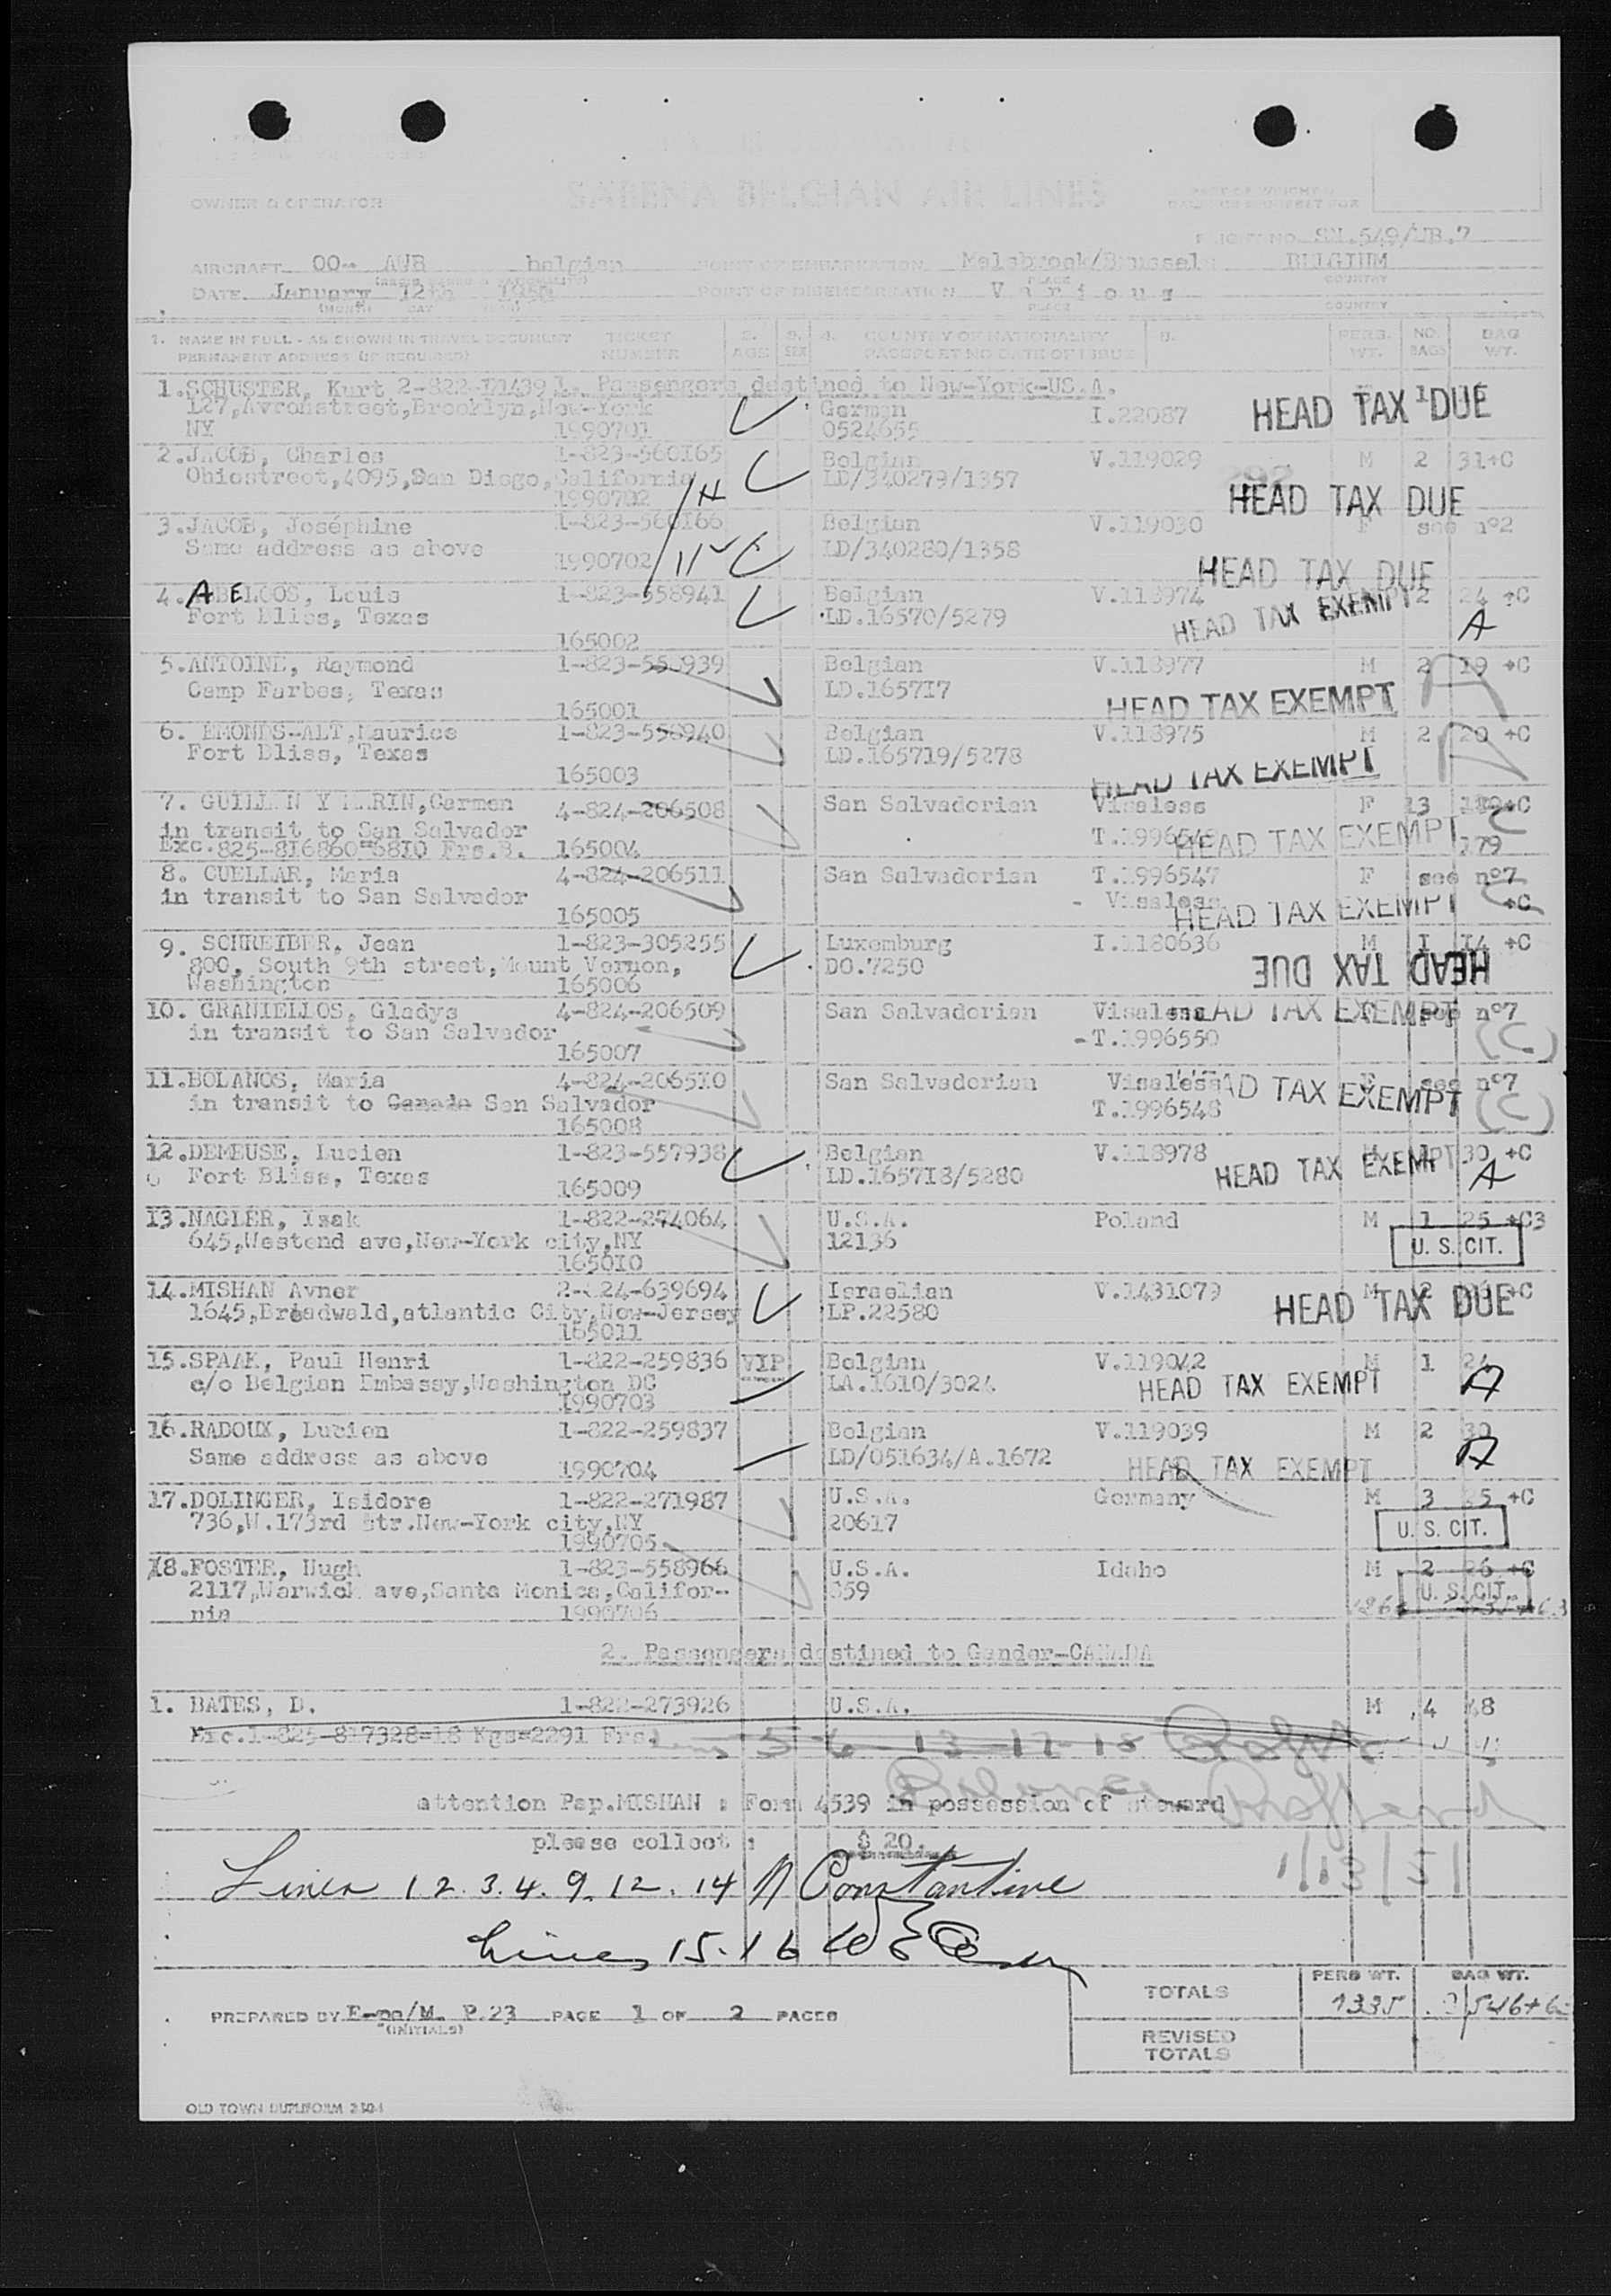 SABENA BELGIAN AIR LINES
OWNER & OPERATOR
FLIGHT NO. SN.549/UB.7
AIRCRAFT OO- AWB belgian POINT OF EMBARKATION Melsbroek/Brussels BELGIUM
PLACE COUNTRY
DATE January 12th POINT OF DISEMBARKATION Various
(MONTH) DAY PLACE COUNTRY
1. NAME IN FULL - AS SHOWN IN TRAVEL DOCUMENT TICKET 2. 3. 4. COUNTRY OF NATIONALITY 5. PERS. NO. BAG
PERMANENT ADDRESS (IF REQUIRED) NUMBER AGE SEX PASSPORT NO DATE OF ISSUE WT. BAGS WT.
1. Passengers destined to New-York-US.A.
1. SCHUSTER, Kurt 2-822-
127, Avronstreet, Brooklyn, New-York German I.22087 HEAD TAX DUE
NY 1990701 0524655
2. JACOB, Charles 1-823-560165 Belgian V.119029 M 2 31+C
Ohiostreet,4095,San Diego,California LD/340279/1357
1990702 HEAD TAX DUE
3. JACOB, Joséphine 1-823-560166 Belgian V.119030 F see n°2
Same address as above LD/340280/1358
1990702 11 HEAD TAX DUE
4. ABELOOS, Louis 1-823-558941 Belgian V.118974 2 24 +C
Fort Bliss, Texas LD.16570/5279 HEAD TAX EXEMPT A
165002
5. ANTOINE, Raymond 1-823-558939 Belgian V.118977 M 2 19 +C
Camp Farbes, Texas LD.165717 HEAD TAX EXEMPT A
165001
6. EMONDS-ALT, Maurice 1-823-558940 Belgian V.118975 M 2 20 +C
Fort Bliss, Texas LD.165719/5278 A
165003 HEAD TAX EXEMPT
7. GUILLEN Y MARIN, Carmen 4-824-206508 San Salvadorian Visaless F 13 +C
in transit to San Salvador T.1996549 HEAD TAX EXEMPT C
Exc. 825-816860=6810 Frs.B. 165004 179
8. CUELLAR, Maria 4-824-206511 San Salvadorian T.1996547 F see n°7
in transit to San Salvador - Visaless +C
165005 HEAD TAX EXEMPT
9. SCHREIBER, Jean 1-823-305255 Luxemburg I.1180636 M 1 14 +C
800, South 9th street, Mount Vernon, DO.7250 HEAD TAX DUE
Washington 165006
10. GRANIELLOS, Gladys 4-824-206509 San Salvadorian Visaless HEAD TAX EXEMPT see n°7
in transit to San Salvador -T.1996550 (C)
165007
11. BOLANOS, Maria 4-824-206510 San Salvadorian Visaless F see n°7
in transit to Canada San Salvador T.1996548 HEAD TAX EXEMPT (C)
165008
12. DEMEUSE, Lucien 1-823-557938 Belgian V.118978 M 30 +C
Fort Bliss, Texas LD.165718/5280 HEAD TAX EXEMPT A
165009
13. NAGLER, Isak 1-822-274064 U.S.A. Poland M 1 25 +C3
645,Westend ave,New-York city,NY 12136 U. S. CIT.
165010
14. MISHAN Avner 2-824-639694 Israelian V.1431079 M 2 +C
1645,Breadwald,atlantic City,New-Jersey LP.22580 HEAD TAX DUE
165011
15. SPAAK, Paul Henri 1-822-259836 VIP Belgian V.119042 M 1 24
c/o Belgian Embassy,Washington DC LA.1610/3024 HEAD TAX EXEMPT A
1990703
16. RADOUX, Lucien 1-822-259837 Belgian V.119039 M 2 30
Same address as above LD/051634/A.1672 HEAD TAX EXEMPT A
1990704
17. DOLINGER, Isidore 1-822-271987 U.S.A. Germany M 3 +C
736,W.173rd str.New-York city,NY 20617 U. S. CIT.
1990705
18. FOSTER, Hugh 1-823-558966 U.S.A. Idaho M 2 26 +C
2117,Warwick ave,Santa Monica,Califor- 359 U. S. CIT.
nia 1990706
2. Passengers destined to Gander-CANADA
1. BATES, D. 1-822-273926 U.S.A. M 4 48
Exc.1-825-817328=18 Kgs=2291 Frs. 5 6 13 17 18
attention Psp.MISHAN : Form 4539 in possession of steward
please collect : $ 20.
1/13/51
Lines 1 2. 3. 4. 9. 12. 14 N Constantine
Lines 15. 16
PERS WT. BAG WT.
TOTALS 1335 546+63
PREPARED BY E-pa/M. P.23 PAGE 1 OF 2 PAGES
(INITIALS)
REVISED
TOTALS
OLD TOWN DUPLIFORM